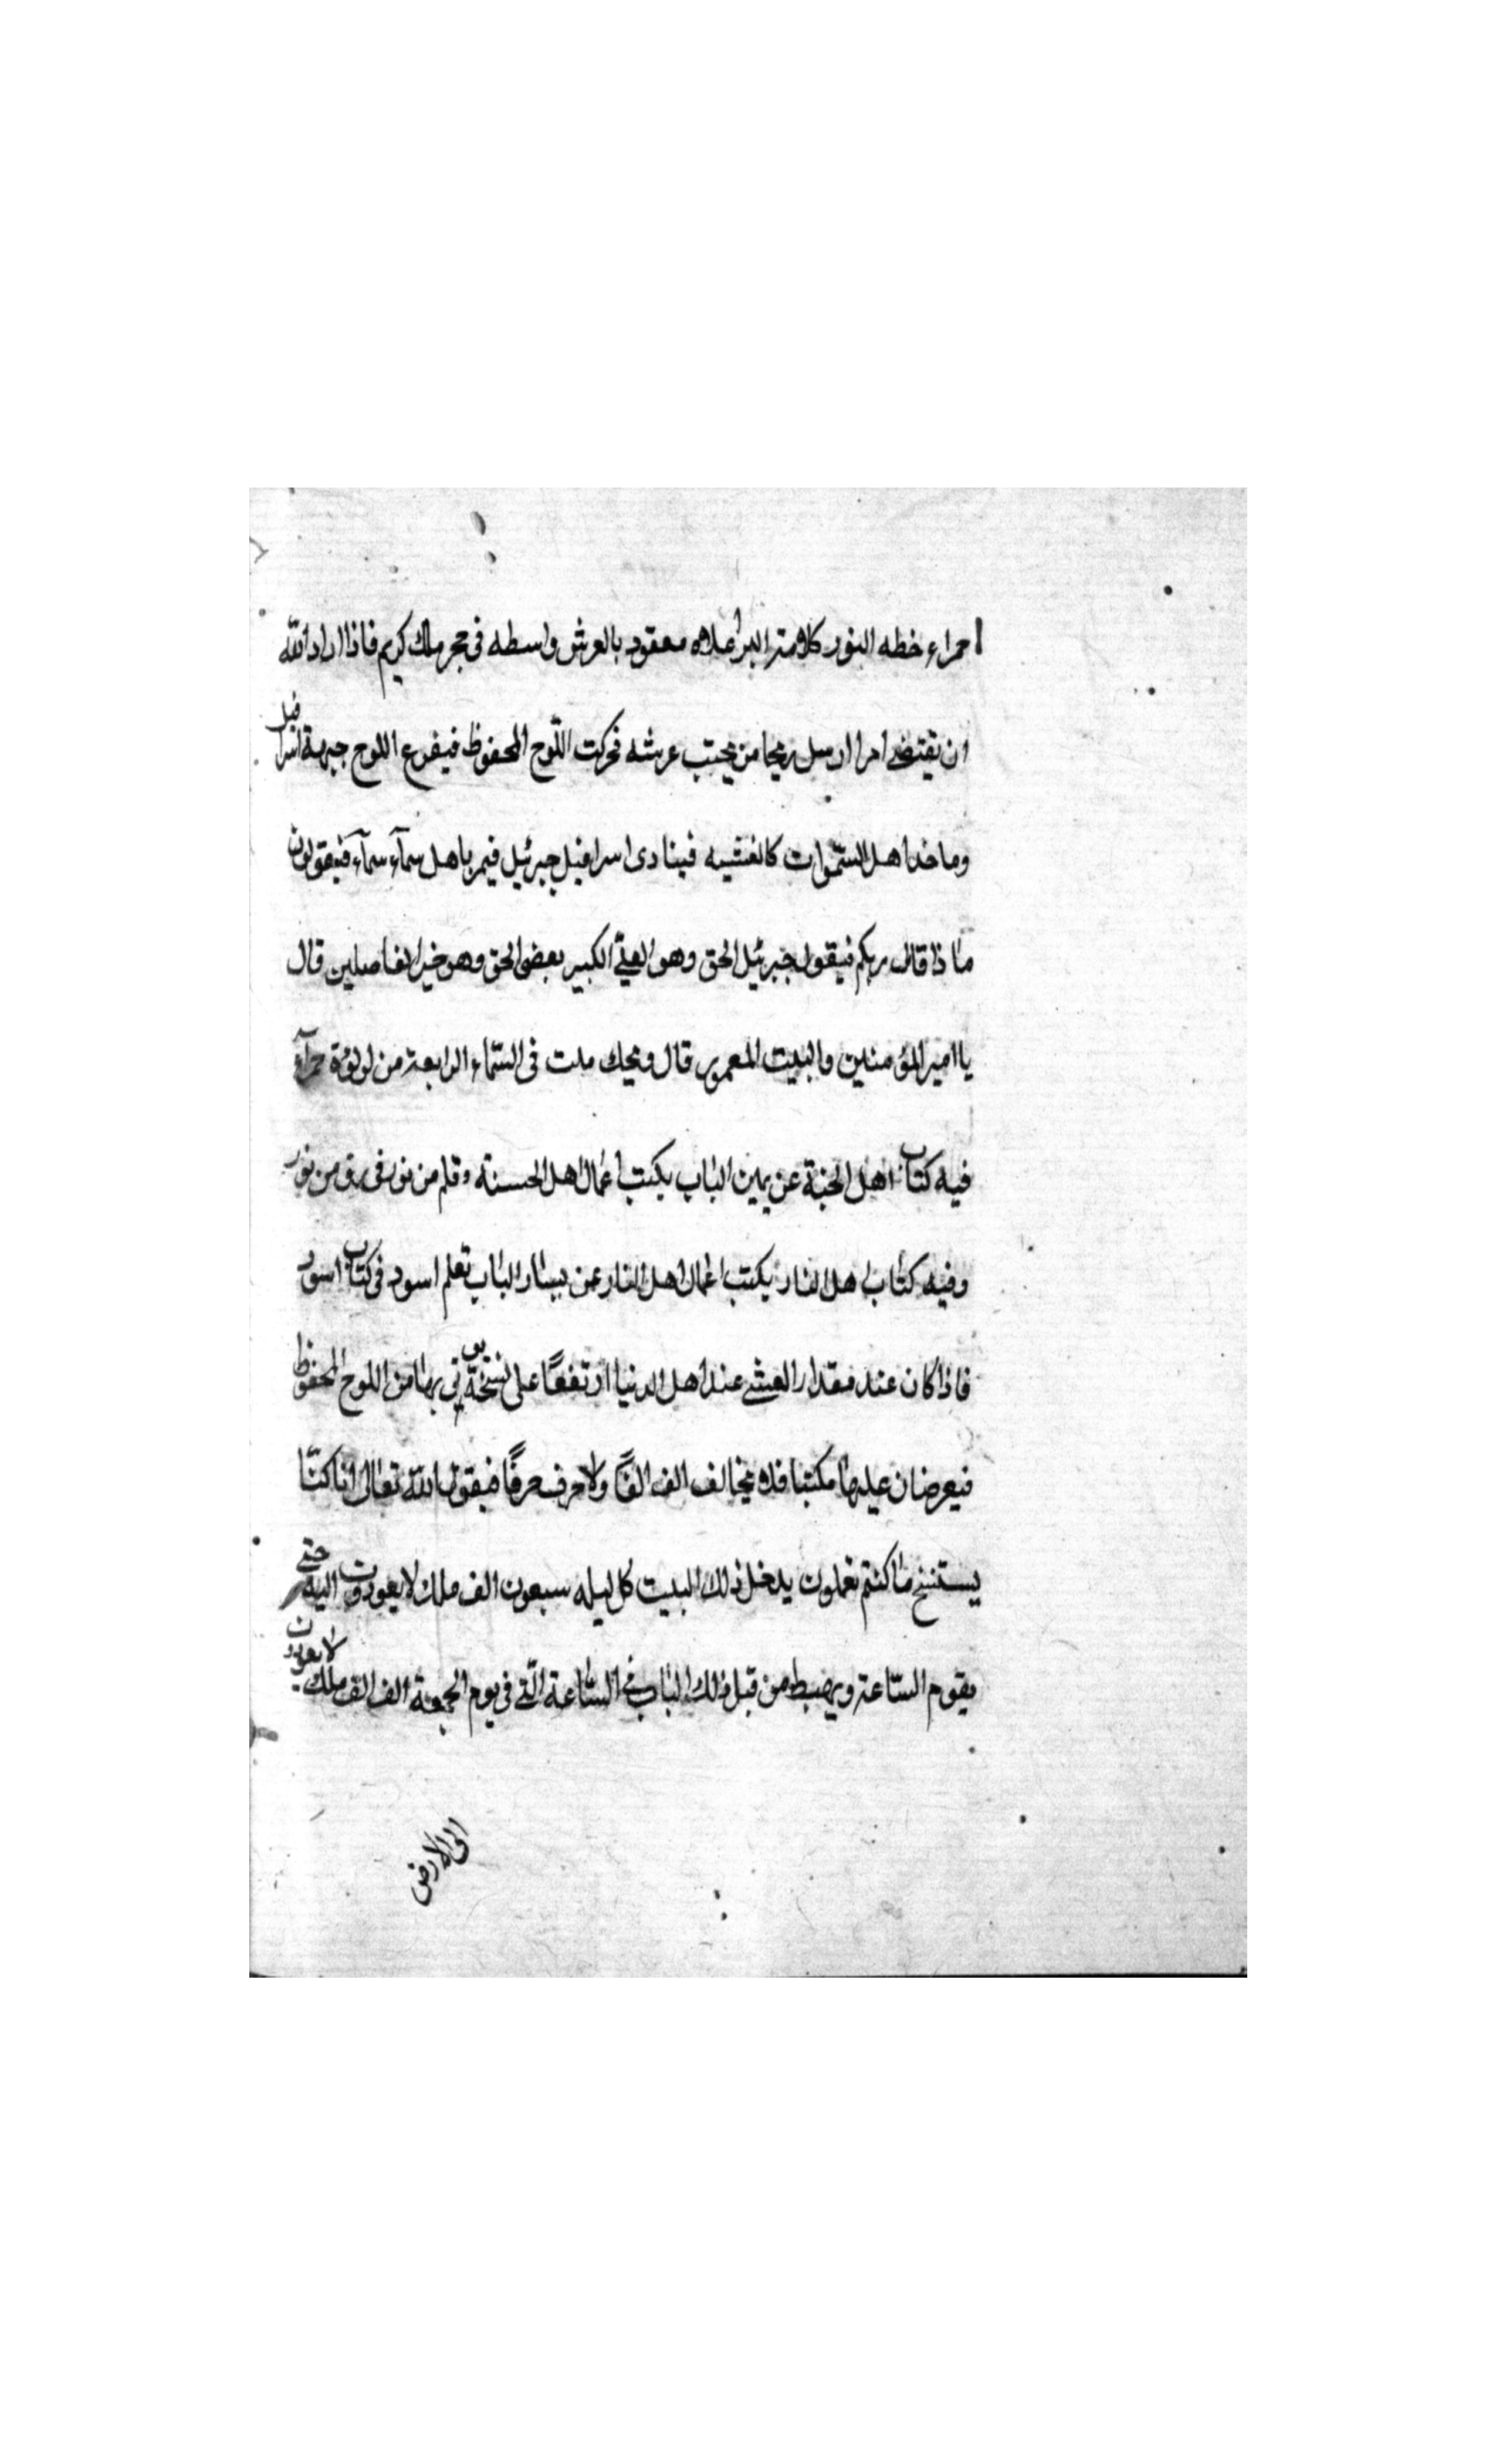 حمراء خطه النور كلامته البر اعلاه معقود بالعرش واسطه فى حجر ملك كريم فاذا اراد الله
ان يقتضى امرا ارسل ريحا من تحت عرشه فحركت اللّوح المحفوظ فيقرع اللوح جبهة اسرافيل
اهل السّموات كالغشيه فينادى اسرافيل جبرئيل فيمر باهل سمآء سمآء فيقولون
ماذا قال ربكم فيقول جبرئيل الحق وهو العلىّ الكبير الحق وهو خير الفاصلين قال
يا امير المؤمنين والبيت المعمور قال ويحك فى السّماء الرابعة من لولؤة حمرآء
فيه كتاب اهل الجنة عن يمين الباب يكتب اعمال اهل الحسنة وقلم من نور فى رق من نور
وفيه كتاب اهل النار يكتب اعمال اهل النار عن يسار الباب بقلم اسود فى كتاب اسود
فاذا كان عند مقدار العشى عند اهل الدنيا ارتفعًا على نسخة يوتي بها من اللوح المحفوظ
فيعرضان عليها مكتبنا فلا يخالف الف الفًا ولا حرف حرفًا فيقول الله تعالى انا كنّا
يستنسخ ما كنتم تعملون يدخل ذلك البيت كل ليله سبعون الف ملك لا يعودون اليه حتى
يقوم السّاعة ويهبط من قبل ذلك الباب فى السّاعة الّتى فى يوم الجمعة الف الف ملك لا يعودون
الى الارض